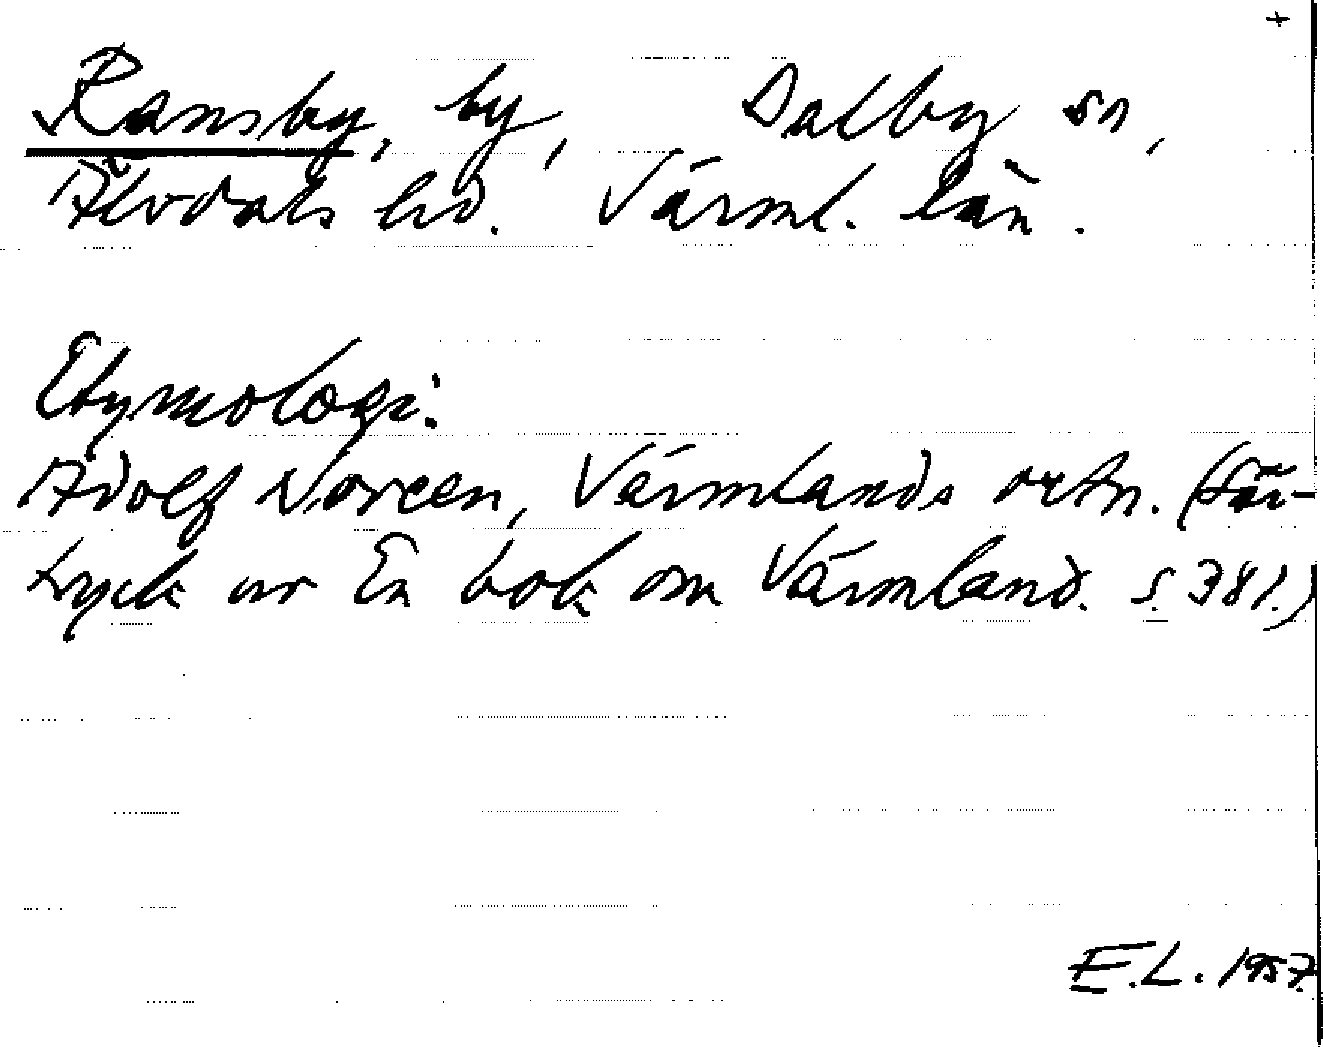 +
Ransby, by, Dalby sn,
Älvdals hd. Värml. län.
Etymologi:
Adolf Noreen, Värmlands ortn. (Sär-
tryck ur En bok om Värmland. S. 381.)
E.L. 1957.